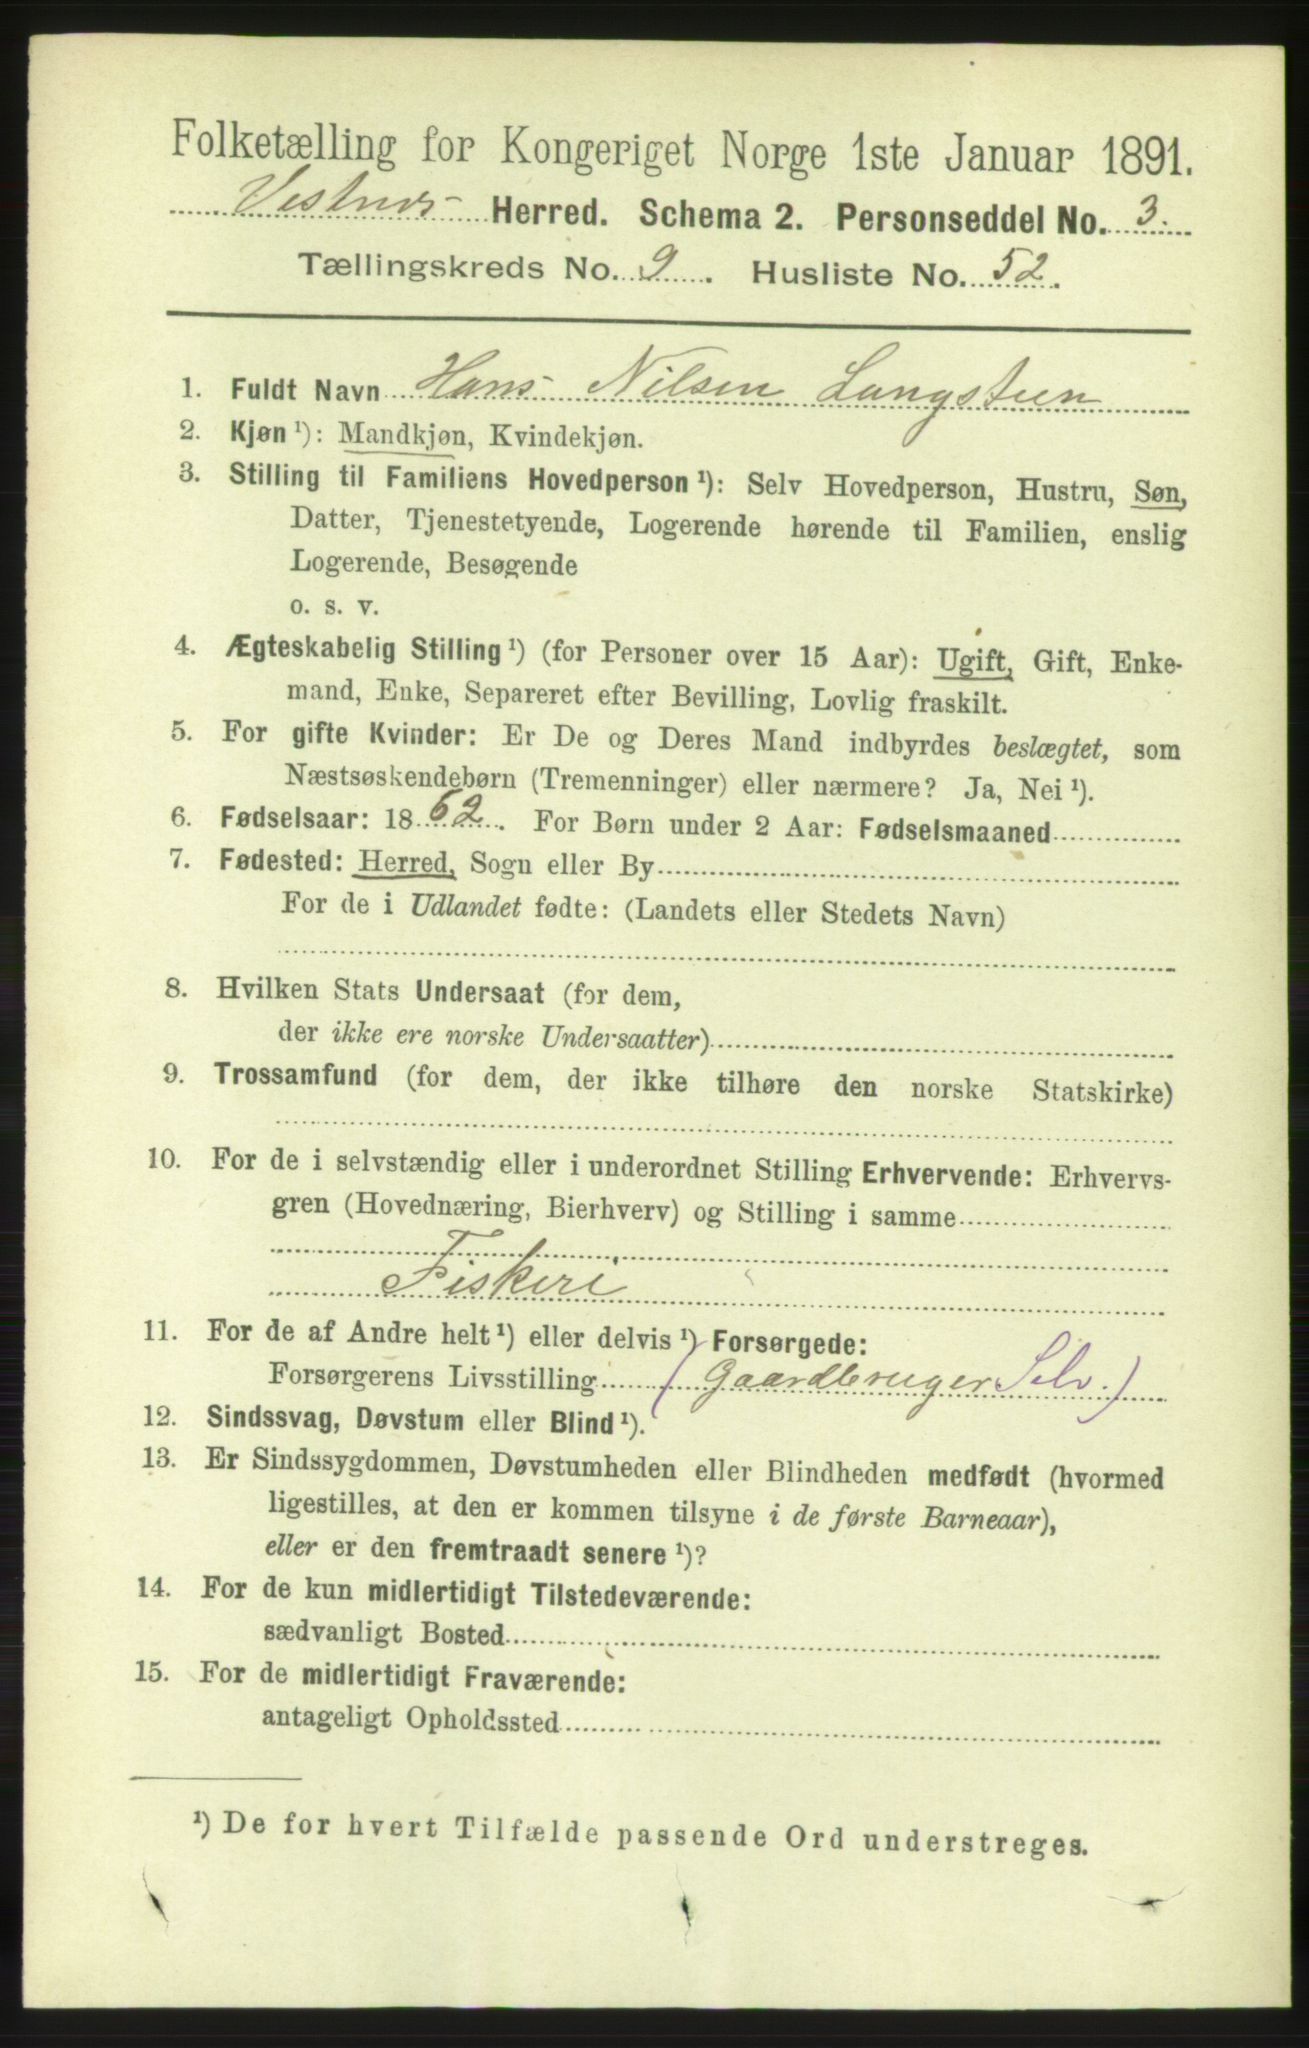 Folketælling for Kongeriget Norge 1ste Januar 1891.
Vestnes Herred. Schema 2. Personseddel No. 3.
Tællingskreds No. 9. Husliste No. 52.
1. Fuldt Navn Hans Nilsen Langsteen
2. Kjøn ¹): Mandkjøn, Kvindekjøn.
3. Stilling til Familiens Hovedperson ¹): Selv Hovedperson, Hustru, Søn,
Datter, Tjenestetyende, Logerende hørende til Familien, enslig
Logerende, Besøgende
o. s. v.
4. Ægteskabelig Stilling ¹) (for Personer over 15 Aar): Ugift, Gift, Enke-
mand, Enke, Separeret efter Bevilling, Lovlig fraskilt.
5. For gifte Kvinder: Er De og Deres Mand indbyrdes beslægtet, som
Næstsøskendebørn (Tremenninger) eller nærmere? Ja, Nei ¹).
6. Fødselsaar: 1862. For Børn under 2 Aar: Fødselsmaaned
7. Fødested: Herred, Sogn eller By
For de i Udlandet fødte: (Landets eller Stedets Navn)
8. Hvilken Stats Undersaat (for dem,
der ikke ere norske Undersaatter)
9. Trossamfund (for dem, der ikke tilhøre den norske Statskirke)
10. For de i selvstændig eller i underordnet Stilling Erhvervende: Erhvervs-
gren (Hovednæring, Bierhverv) og Stilling i samme
Fiskeri
11. For de af Andre helt ¹) eller delvis ¹) Forsørgede:
Forsørgerens Livsstilling (Gaardbruger Selv.)
12. Sindssvag, Døvstum eller Blind ¹).
13. Er Sindssygdommen, Døvstumheden eller Blindheden medfødt (hvormed
ligestilles, at den er kommen tilsyne i de første Barneaar),
eller er den fremtraadt senere ¹)?
14. For de kun midlertidigt Tilstedeværende:
sædvanligt Bosted
15. For de midlertidigt Fraværende:
antageligt Opholdssted
¹) De for hvert Tilfælde passende Ord understreges.